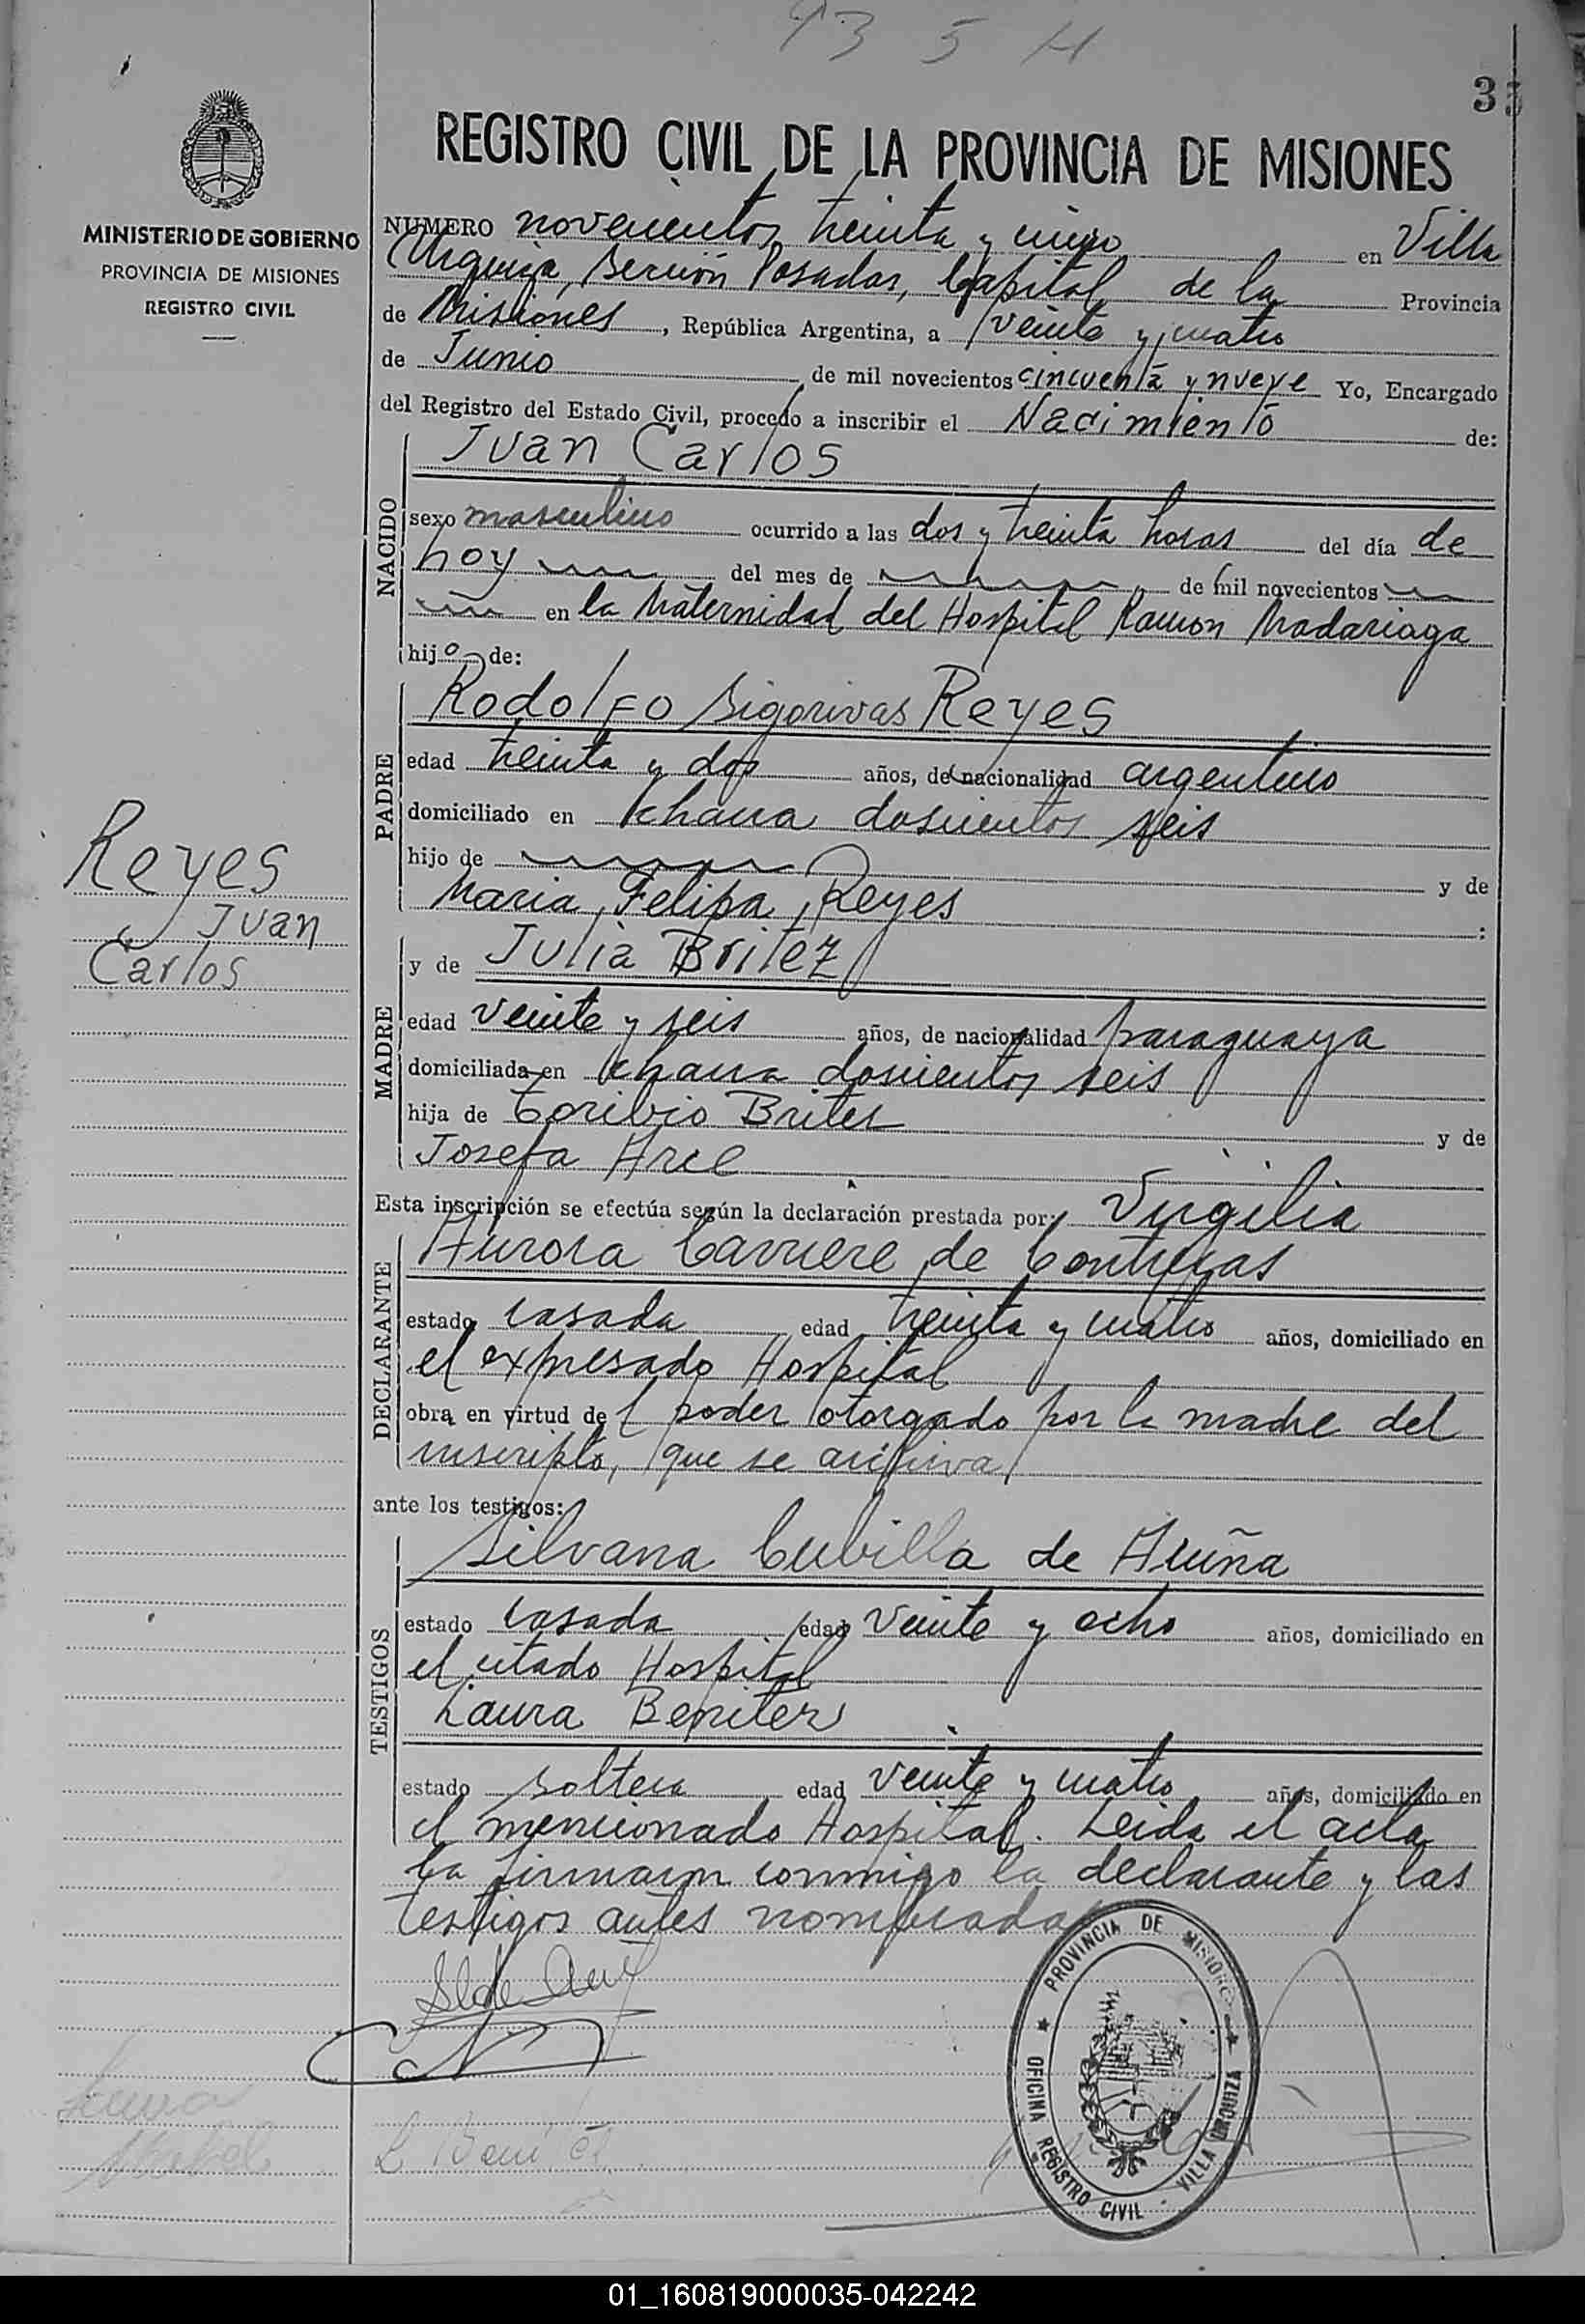 935 H
33
MINISTERIO DE GOBIERNO
PROVINCIA DE MISIONES
REGISTRO CIVIL
REGISTRO CIVIL DE LA PROVINCIA DE MISIONES
NUMERO novecientos treinta y cinco en Villa
Urquiza, Sección Posadas, Capital de la Provincia
de Misiones, República Argentina, a veinte y cuatro
de Junio de mil novecientos cincuenta y nueve Yo, Encargado
del Registro del Estado Civil, procedo a inscribir el Nacimiento de:
NACIDO
Juan Carlos
sexo masculino ocurrido a las dos y treinta horas del día de
hoy del mes de de mil novecientos
en la Maternidad del Hospital Ramon Madariaga
hijo de:
PADRE
Rodolfo Reyes
edad treinta y dos años, de nacionalidad argentino
domiciliado en Chaua doscientos seis
hijo de y de
Maria Felipa Reyes :
Reyes
Juan
Carlos
MADRE
y de Julia Britez
edad veinte y seis años, de nacionalidad paraguaya
domiciliada en doscientos seis
hija de Toribio Britez y de
Josefa Arce
Esta inscripción se efectúa según la declaración prestada por: Virgilia
DECLARANTE
Aurora de Contreras
estado casada edad treinta y cuatro años, domiciliado en
el expresado Hospital
obra en virtud del poder otorgado por la madre del
inscripto, que se archiva
ante los testigos:
TESTIGOS
Silvana Cubilla de Acuña
estado casada edad veinte y ocho años, domiciliado en
el citado Hospital
Laura Benitez
estado soltera edad veinte y cuatro años, domiciliado en
el mencionado Hospital. Leida el acta
la firmaron conmigo la declarante y las
testigos antes nombradas
S. de Acuña
L Benitez
PROVINCIA DE MISIONES
OFICINA REGISTRO CIVIL - VILLA URQUIZA
01_160819000035-042242